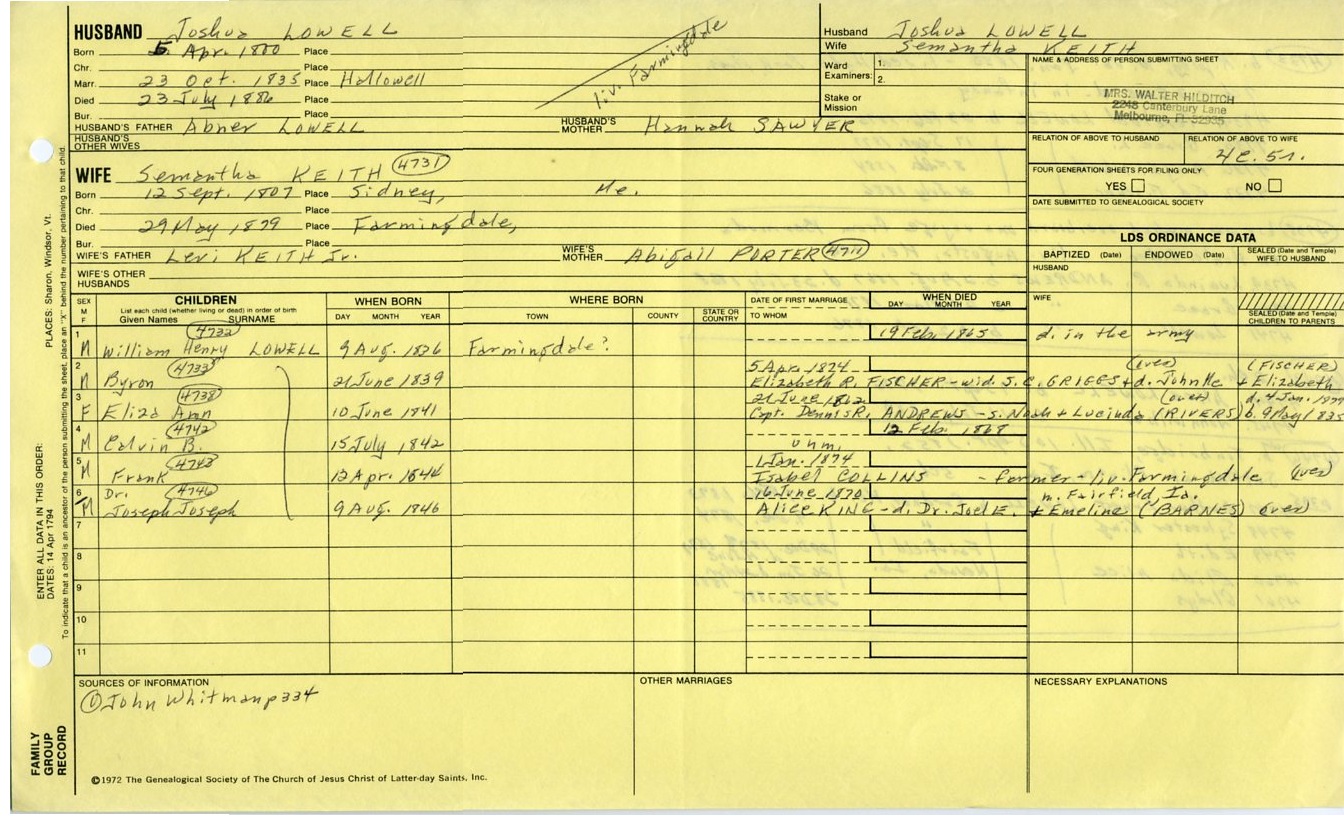 HUSBAND Joshua LOWELL
Born 5 Apr. 1800 Place
Chr. Place
Marr. 23 Oct. 1835 Place Hallowell
Died 23 July 1886 Place
Bur. Place
HUSBAND'S FATHER Abner LOWELL HUSBAND'S MOTHER Hannah SAWYER
HUSBAND'S OTHER WIVES
liv. Farmingdale
Husband Joshua LOWELL
Wife Semantha KEITH
Ward Examiners: 1.
2.
Stake or Mission
NAME & ADDRESS OF PERSON SUBMITTING SHEET
MRS. WALTER HILDITCH
2248 Canterbury Lane
Melbourne, Fl. 32935
RELATION OF ABOVE TO HUSBAND RELATION OF ABOVE TO WIFE
4c. 5r.
FOUR GENERATION SHEETS FOR FILING ONLY
YES NO
DATE SUBMITTED TO GENEALOGICAL SOCIETY
WIFE Semantha KEITH 4731
Born 12 Sept. 1807 Place Sidney, Me.
Chr. Place
Died 29 May 1879 Place Farmingdale,
Bur. Place
WIFE'S FATHER Levi KEITH Jr. WIFE'S MOTHER Abigail PORTER 4711
WIFE'S OTHER HUSBANDS
LDS ORDINANCE DATA
BAPTIZED (Date) ENDOWED (Date) SEALED (Date and Temple) WIFE TO HUSBAND
HUSBAND
WIFE
SEALED (Date and Temple) CHILDREN TO PARENTS
SEX M F CHILDREN WHEN BORN WHERE BORN DATE OF FIRST MARRIAGE WHEN DIED
List each child (whether living or dead) in order of birth
Given Names SURNAME DAY MONTH YEAR TOWN COUNTY STATE OR COUNTRY TO WHOM DAY MONTH YEAR
1 4732 19 Feb. 1865 d. in the army
M William Henry LOWELL 9 Aug. 1836 Farmingdale?
2 4733 5 Apr. 1874 (over) (FISCHER)
M Byron 21 June 1839 Elizabeth R. FISCHER - wid. S.C. GRIGGS + d. John Mc + Elizabeth
3 4738 21 June 1862 (over) d. 4 Jan. 1899
F Eliza Ann 10 June 1841 Capt. Dennis R. ANDREWS - s. Noah + Lucinda (RIVERS) b. 9 May 1835
4 4742 12 Feb. 1868
M Calvin B. 15 July 1842 unm.
5 4743 1 Jan. 1874
M Frank 12 Apr. 1844 Isabel COLLINS - farmer - liv. Farmingdale (over)
6 Dr. 4746 16 June 1870 m. Fairfield, Ia.
M Joseph Joseph 9 Aug. 1846 Alice KING - d. Dr. Joel E. + Emeline (BARNES) over)
7
8
9
10
11
SOURCES OF INFORMATION
① John Whitman p 334
OTHER MARRIAGES
NECESSARY EXPLANATIONS
©1972 The Genealogical Society of The Church of Jesus Christ of Latter-day Saints, Inc.
FAMILY GROUP RECORD
ENTER ALL DATA IN THIS ORDER:
DATES: 14 Apr 1794
PLACES: Sharon, Windsor, Vt.
To indicate that a child is an ancestor of the person submitting the sheet, place an "X" behind the number pertaining to that child.